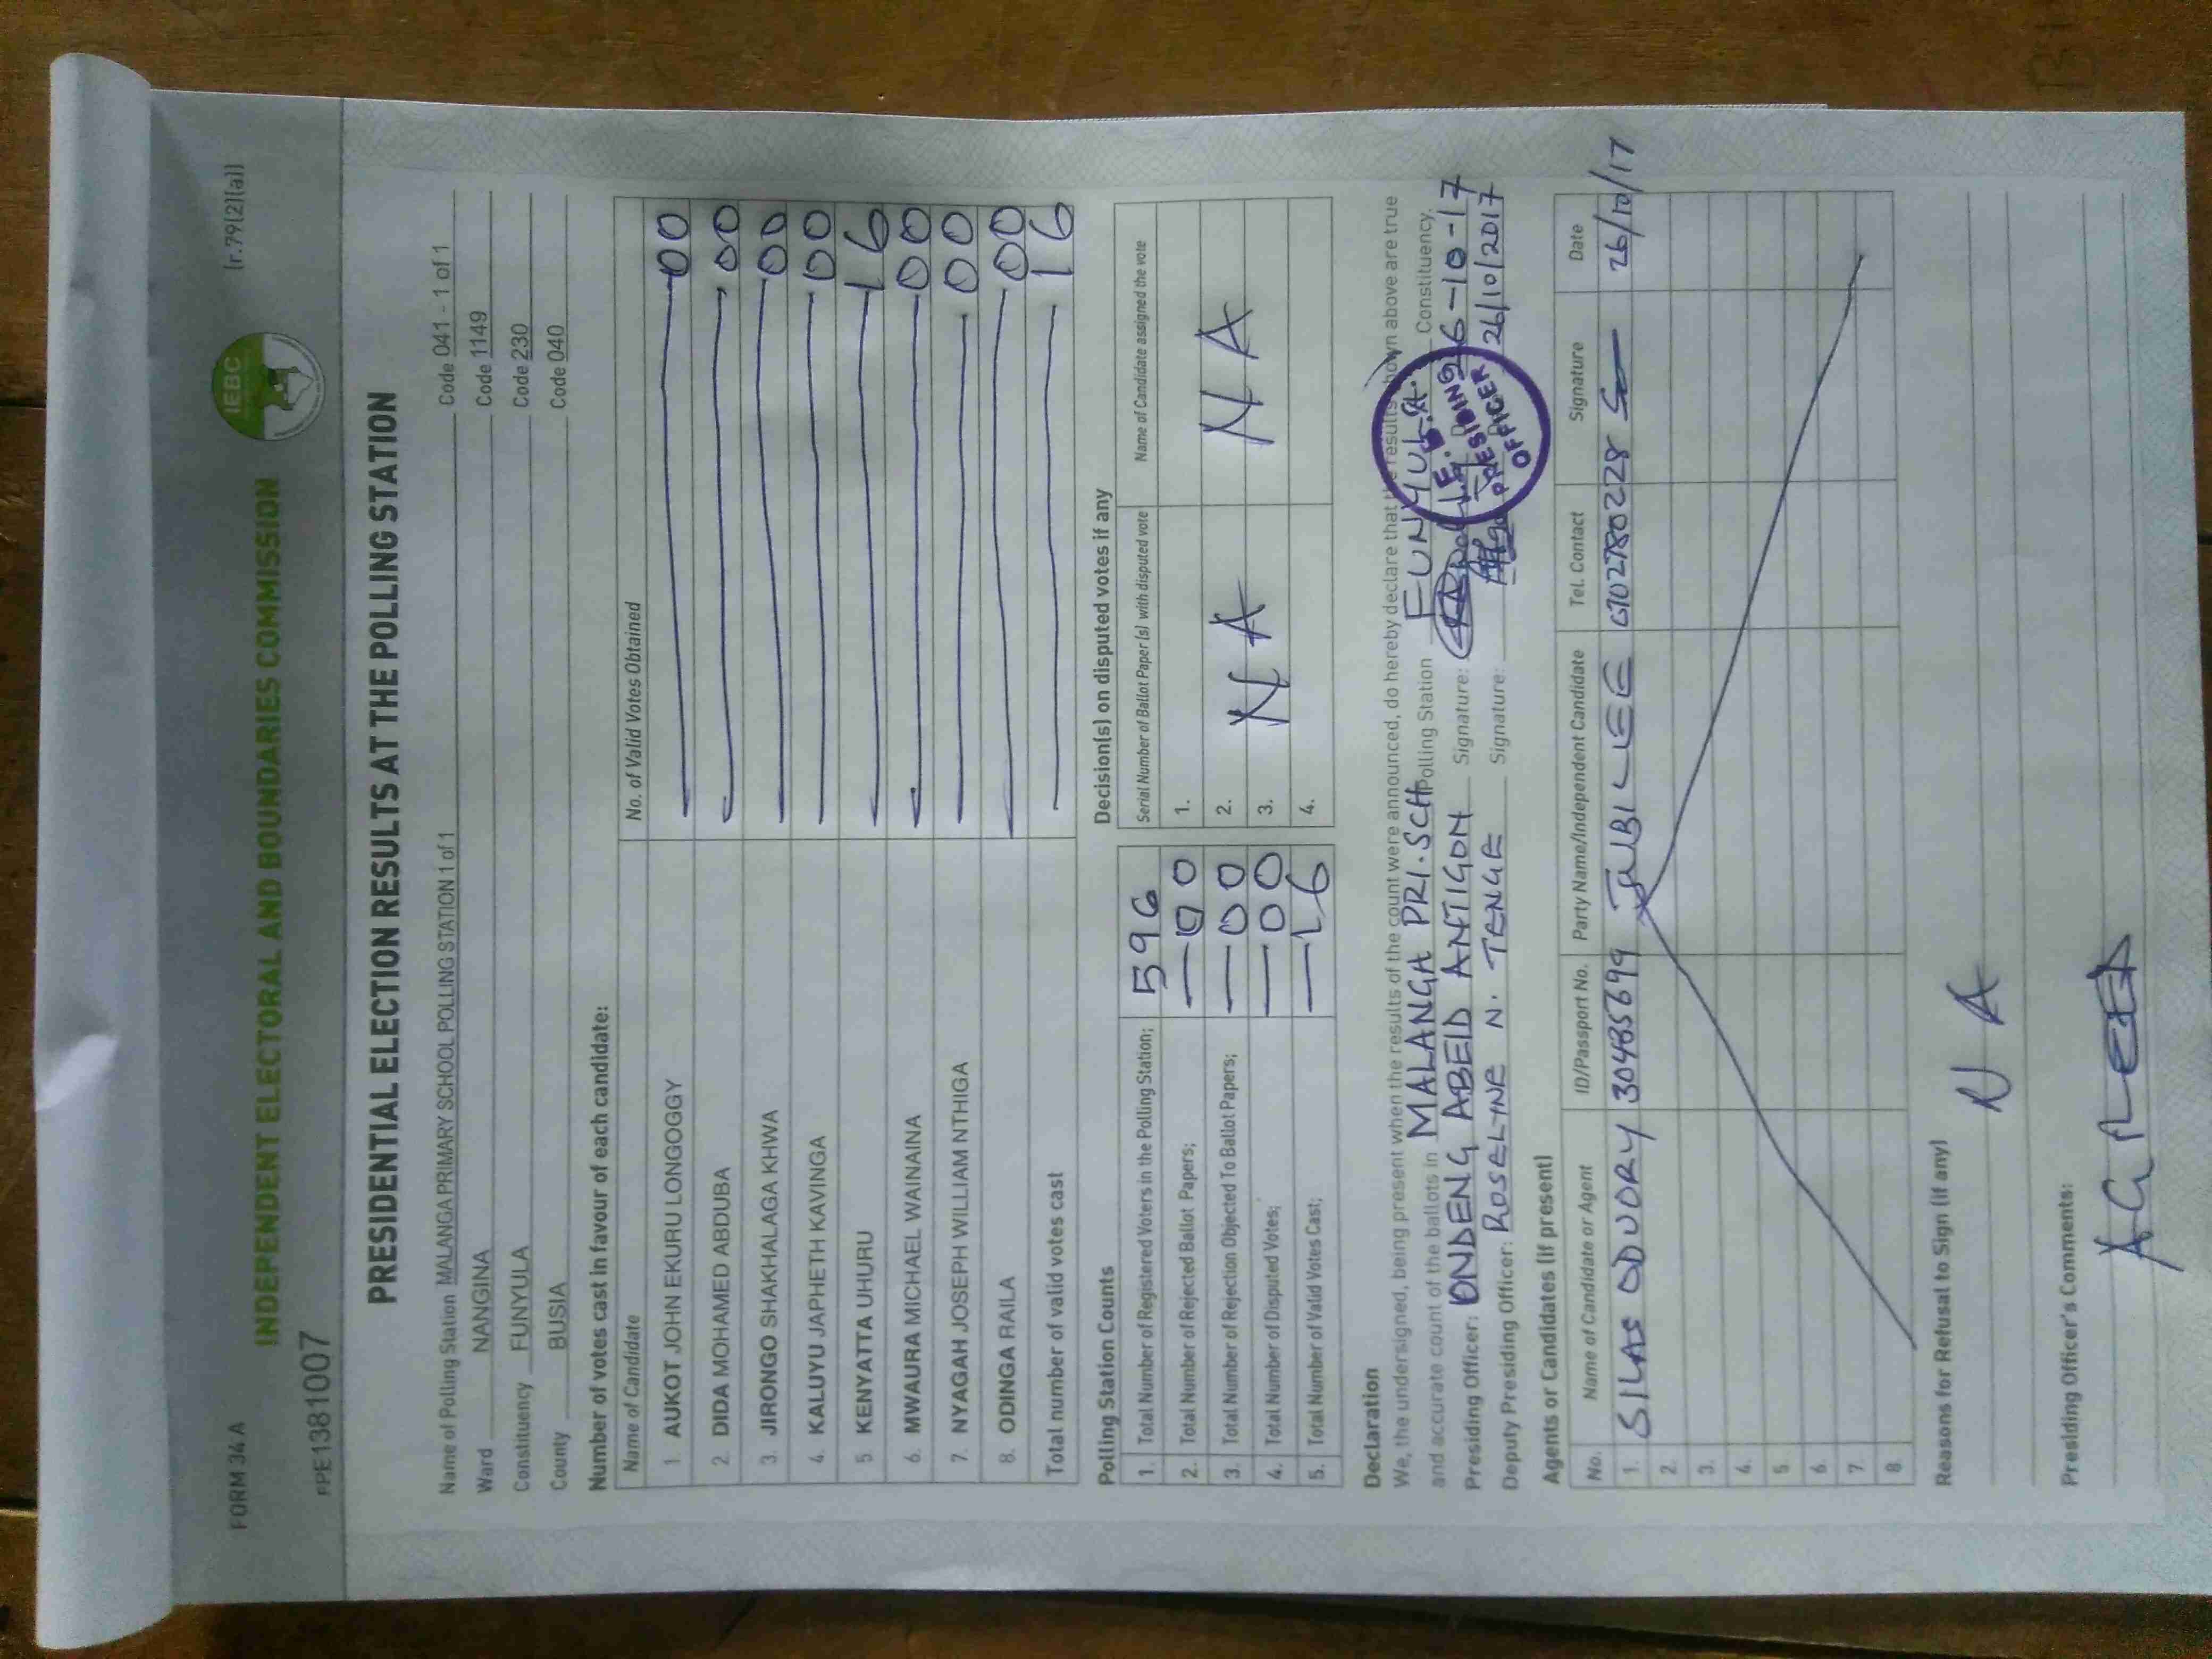 FORM 34A
(r.79(2)(a))
IEBC
INDEPENDENT ELECTORAL AND BOUNDARIES COMMISSION
PPE1381007
PRESIDENTIAL ELECTION RESULTS AT THE POLLING STATION
Name of Polling Station MALANGA PRIMARY SCHOOL POLLING STATION 1 of 1 Code 041 - 1 of 1
Ward NANGINA Code 1149
Constituency FUNYULA Code 230
County BUSIA Code 040
Number of votes cast in favour of each candidate:
Name of Candidate No. of Valid Votes Obtained
1. AUKOT JOHN EKURU LONGOGGY 00
2. DIDA MOHAMED ABDUBA 00
3. JIRONGO SHAKHALAGA KHWA 00
4. KALUYU JAPHETH KAVINGA 00
5 KENYATTA UHURU 16
6. MWAURA MICHAEL WAINAINA 00
7. NYAGAH JOSEPH WILLIAM NTHIGA 00
8. ODINGA RAILA 00
Total number of valid votes cast 16
Polling Station Counts
1. Total Number of Registered Voters in the Polling Station; 596
2. Total Number of Rejected Ballot Papers; 00
3. Total Number of Rejection Objected To Ballot Papers; 00
4. Total Number of Disputed Votes; 00
5. Total Number of Valid Votes Cast; 16
Decision(s) on disputed votes if any
Serial Number of Ballot Paper (s) with disputed vote Name of Candidate assigned the vote
1.
2. N A N A
3.
4.
Declaration
We, the undersigned, being present when the results of the count were announced, do hereby declare that the results shown above are true
and accurate count of the ballots in MALANGA PRI. SCH Polling Station FUNYULA Constituency.
Presiding Officer: ONDENG ABEID ANTIGON Signature: 26-10-17
Deputy Presiding Officer: ROSELYNE N. TENGE Signature: 26/10/2017
I.E.B.C.
PRESIDING
OFFICER
Agents or Candidates (if present)
No. Name of Candidate or Agent ID/Passport No. Party Name/Independent Candidate Tel. Contact Signature Date
1. SILAS ODUORY 30485699 JUBILEE 0702780228 26/10/17
2.
3.
4.
5.
6.
7.
8
Reasons for Refusal to Sign (if any)
N A
Presiding Officer's Comments:
AGREED